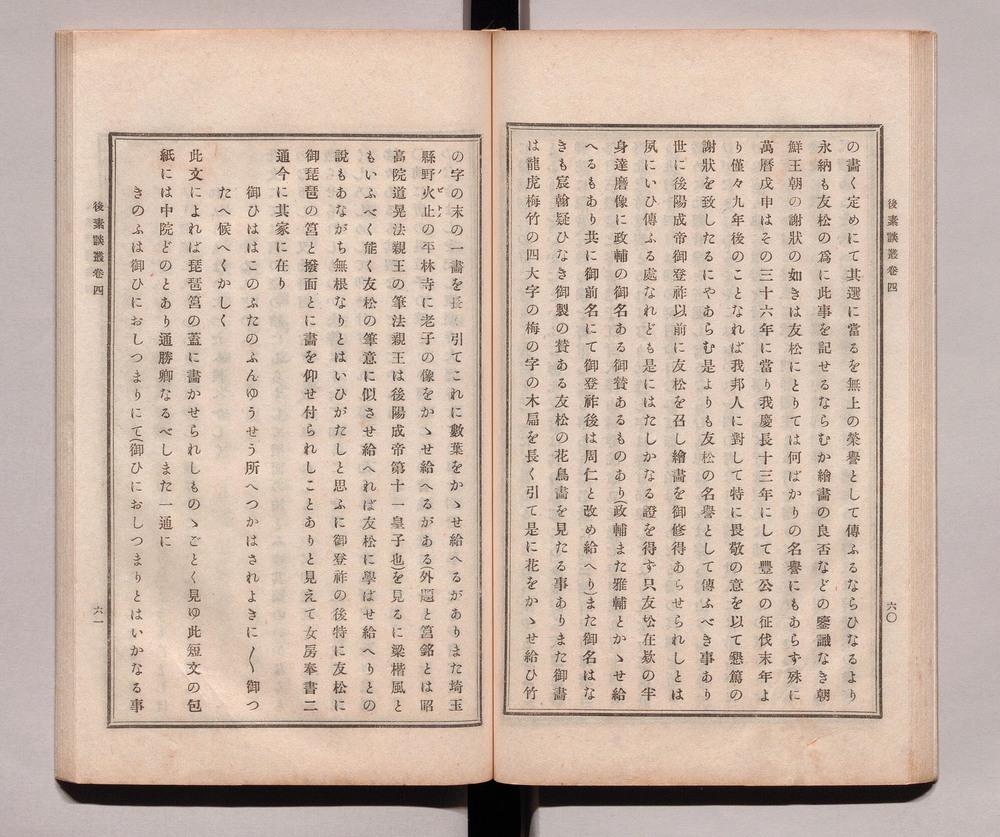 後素談叢卷四
の畵く定めにて其選に當るを無上の榮譽として傳ふるならひなるより
永納も友松の爲に此事を記せるならむか繪畵の良否などの鑒識なき朝
鮮王朝の謝狀の如きは友松にとりては何ばかりの名譽にもあらず殊に
萬曆戊申はその三十六年に當り我慶長十三年にして豐公の征伐末年よ
り僅々九年後のことなれば我邦人に對して特に畏敬の意を以て懇篤の
謝狀を致したるにやあらむ是よりも友松の名譽として傳ふべき事あり
世に後陽成帝御登祚以前に友松を召し繪畵を御修得あらせられしとは
夙にいひ傳ふる處なれども是にはたしかなる證を得ず只友松在欵の半
身達磨像に政輔の御名ある御賛あるものあり(政輔また雅輔とかゝせ給
へるもあり共に御前名にて御登祚後は周仁と改め給へり)また御名はな
きも宸翰疑ひなき御製の賛ある友松の花鳥畵を見たる事ありまた御書
は龍虎梅竹の四大字の梅の字の木扁を長く引て是に花をかゝせ給ひ竹
六〇
後素談叢卷四
の字の末の一畵を長く引てこれに數葉をかゝせ給へるがありまた埼玉
縣野火止の平林寺に老子の像をかゝせ給へるがある(外題と筥銘とは昭
高院道晃法親王の筆法親王は後陽成帝第十一皇子也)を見るに梁楷風と
もいふべく能く友松の筆意に似させ給へれば友松に學ばせ給へりとの
說もあながち無根なりとはいひがたしと思ふに御登祚の後特に友松に
御琵琶の筥と撥面とに畵を仰せ付られしことありと見えて女房奉書二
通今に其家に在り
御ひははこのふたのふんゆうせう所へつかはされよきに〳〵御つ
たへ候へくかしく
此文によれば琵琶筥の蓋に畵かせられしものゝごとく見ゆ此短文の包
紙には中院どのとあり通勝卿なるべしまた一通に
きのふは御ひにおしつまりにて(御ひにおしつまりとはいかなる事
六一